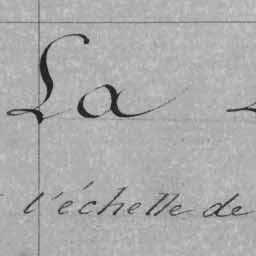 La
l'échelle de